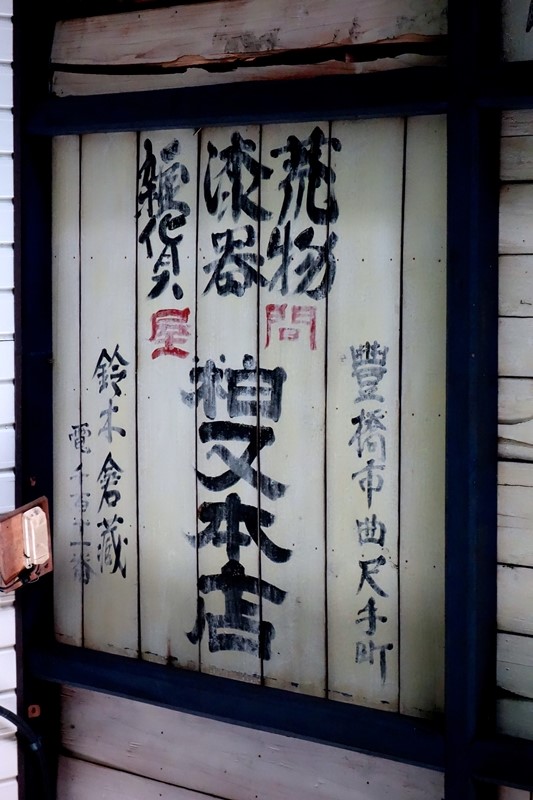 豊橋市曲尺手町
荒物
漆器
雑貨
問屋
柏又本店
鈴木倉蔵
電千百十一番